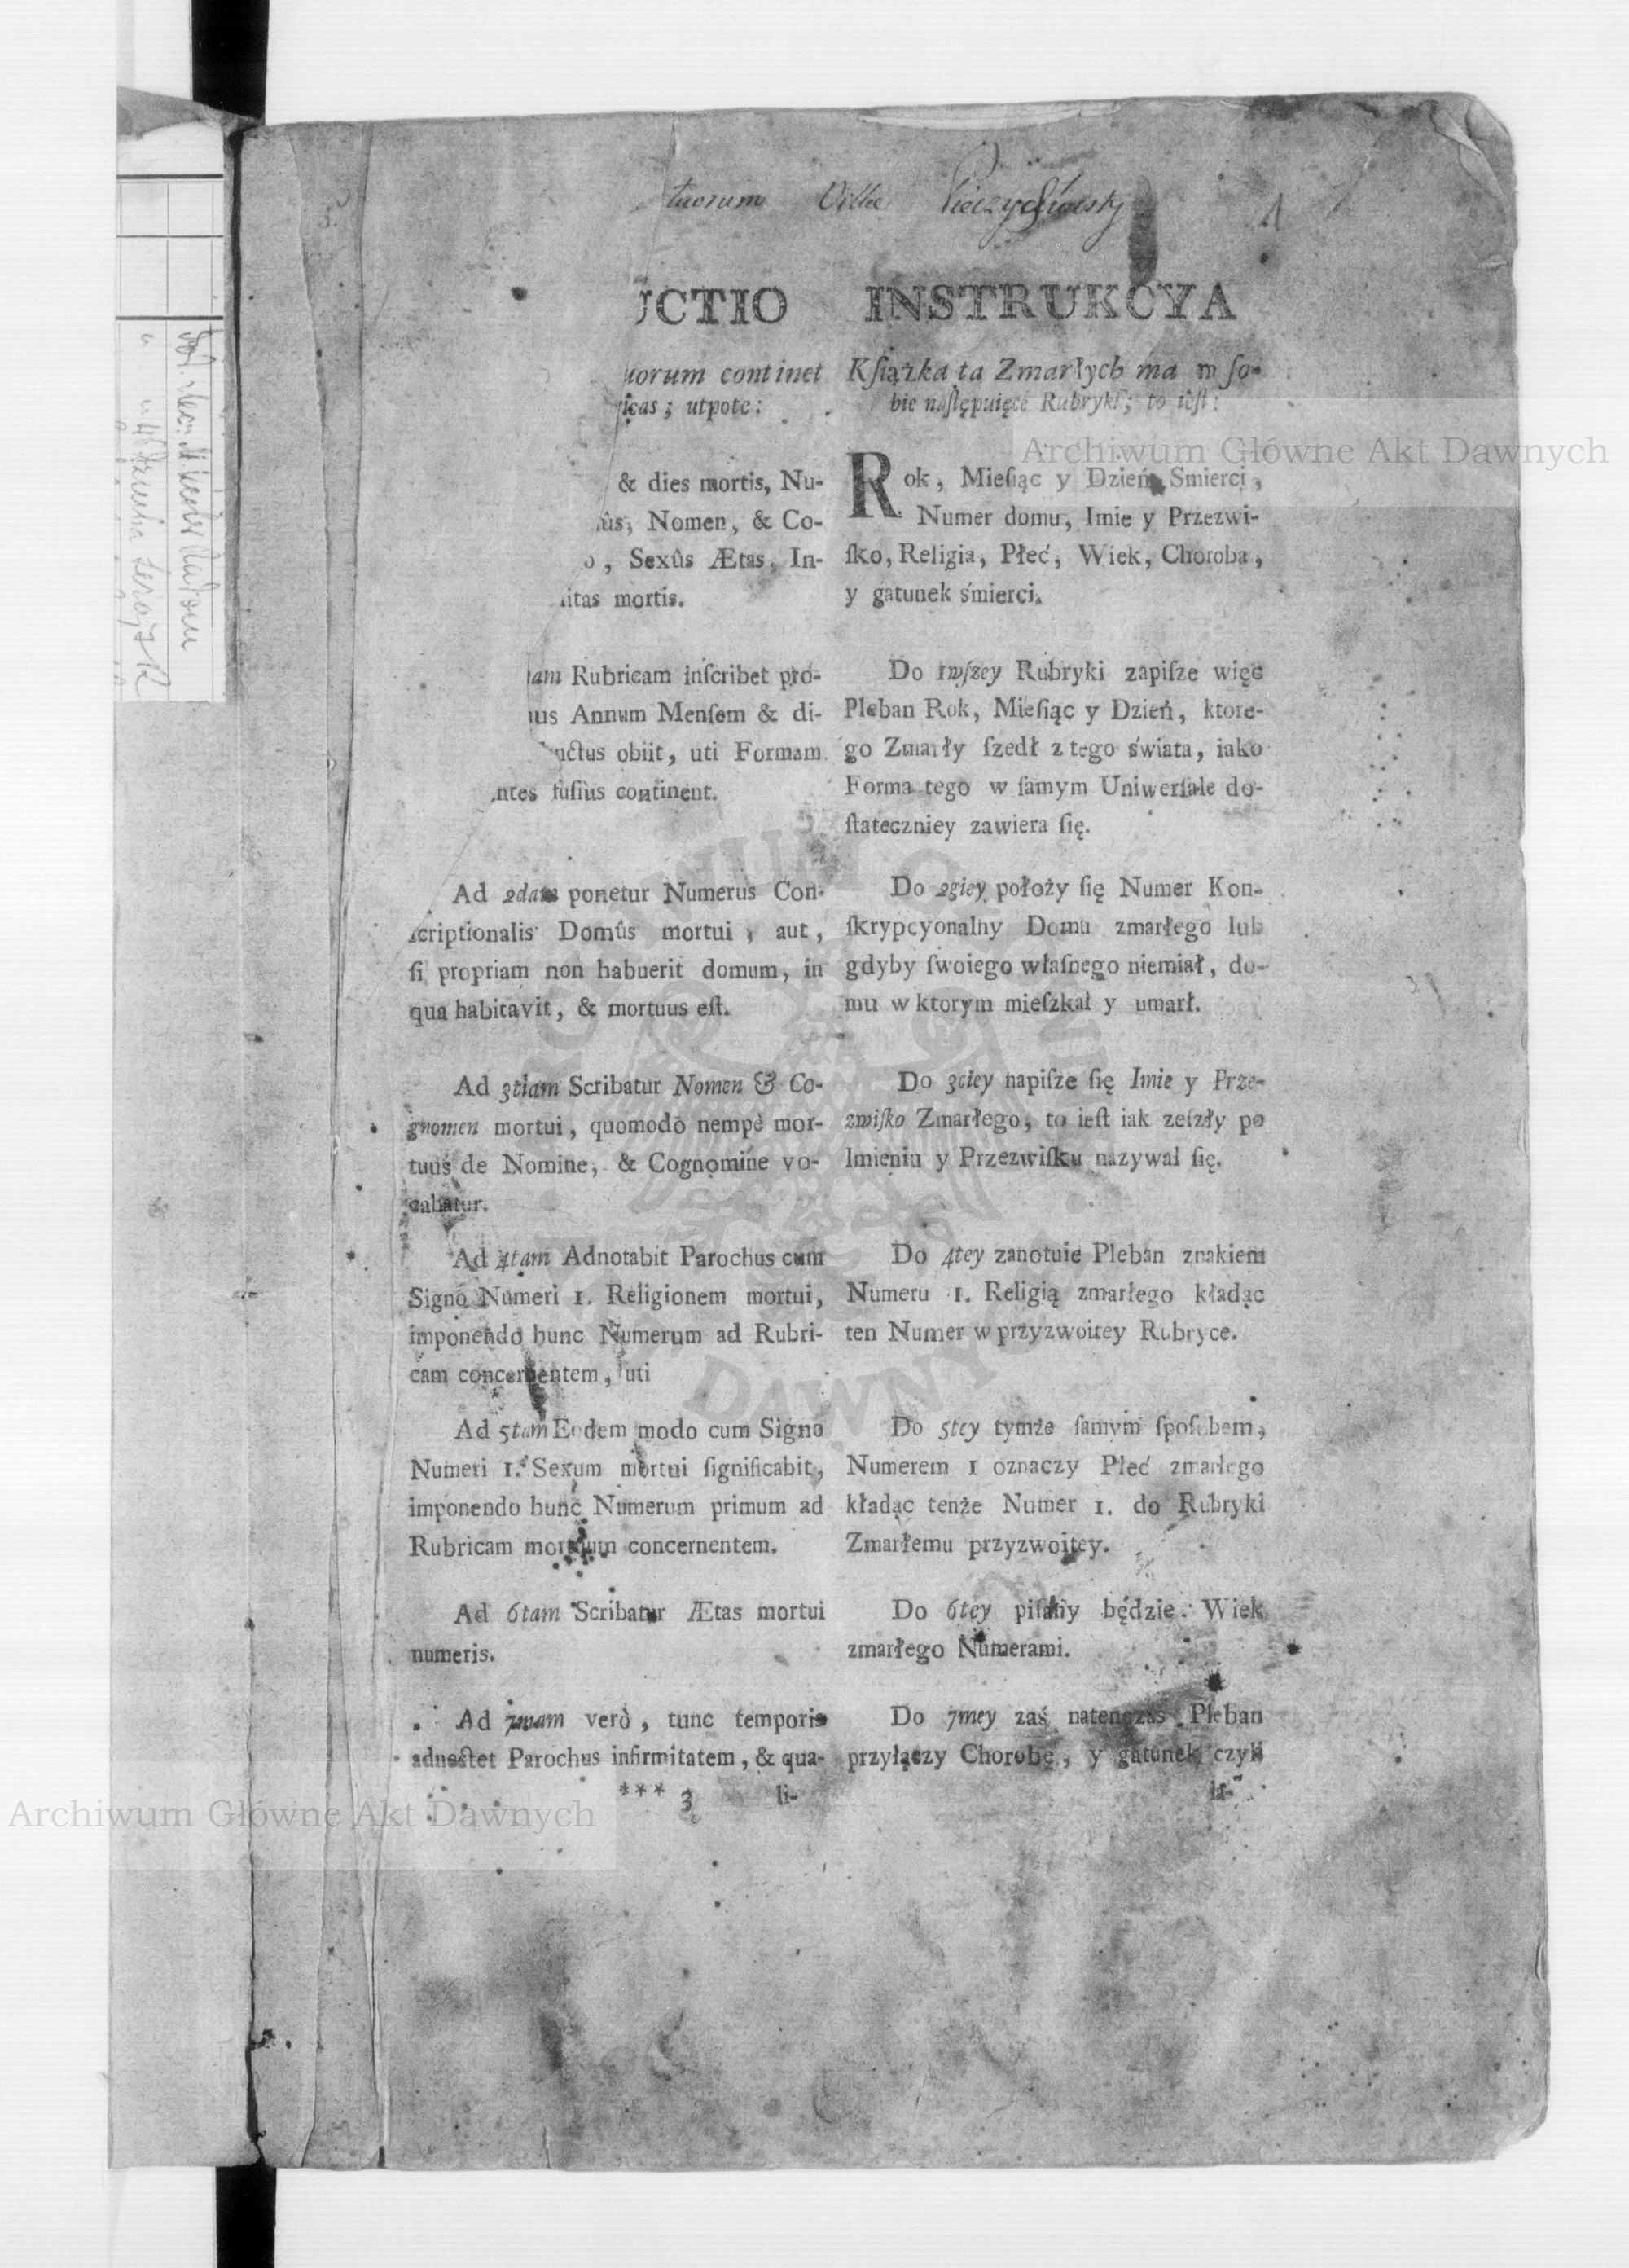 tuorum Villæ
1
UCTIO
uorum continet
icas; utpote:
& dies mortis, Nu-
ûs, Nomen, & Co-
o, Sexûs Ætas, In-
litas mortis.
am Rubricam inſcribet pro-
us Annum Menſem & di-
uctus obiit, uti Formam
ntes fuſiùs continent.
Ad 2dam ponetur Numerus Con-
ſcriptionalis Domûs mortui, aut,
ſi propriam non habuerit domum, in
qua habitavit, & mortuus eſt.
Ad 3tiam Scribatur Nomen & Co-
gnomen mortui, quomodò nempè mor-
tuus de Nomine, & Cognomine vo-
cabatur.
Ad 4tam Adnotabit Parochus cum
Signo Numeri 1. Religionem mortui,
imponendo hunc Numerum ad Rubri-
cam concernentem, uti
Ad 5tam Eodem modo cum Signo
Numeri 1. Sexum mortui ſignificabit,
imponendo hunc Numerum primum ad
Rubricam mortuum concernentem.
Ad 6tam Scribatur Ætas mortui
numeris.
Ad 7mam verò, tunc temporis
adnectet Parochus infirmitatem, & qua-
*** 3 li-
INSTRUKCYA
Kſiążka ta Zmarłych ma w ſo-
bie naſtępuięcé Rubryki; to ieſt:
Rok, Mieſiąc y Dzień Smierci,
Numer domu, Imie y Przezwi-
ſko, Religia, Płeć, Wiek, Choroba,
y gatunek śmierci.
Do 1wſzey Rubryki zapiſze więc
Pleban Rok, Mieſiąc y Dzień, ktore-
go Zmarły ſzedł z tego świata, iako
Forma tego w ſamym Uniwerſale do-
ſtateczniey zawiera ſię.
Do 2giey położy ſię Numer Kon-
ſkrypcyonalny Domu zmarłego lub
gdyby ſwoiego właſnego niemiał, do-
mu w ktorym mieſzkał y umarł.
Do 3ciey napiſze ſię Imie y Prze-
zwiſko Zmarłego, to ieſt iak zeſzły po
Imieniu y Przezwiſku nazywał ſię.
Do 4tey zanotuie Pleban znakiem
Numeru 1. Religią zmarłego kładąc
ten Numer w przyzwoitey Rubryce.
Do 5tey tymże ſamym ſpoſobem,
Numerem 1 oznaczy Płeć zmarłego
kładąc tenże Numer 1. do Rubryki
Zmarłemu przyzwoitey.
Do 6tey piſany będzie Wiek
zmarłego Numerami.
Do 7mey zaś natenczas Pleban
przyłączy Chorobę, y gatunek czyli
ia-
Archiwum Główne Akt Dawnych
Archiwum Główne Akt Dawnych
DAWNYCH